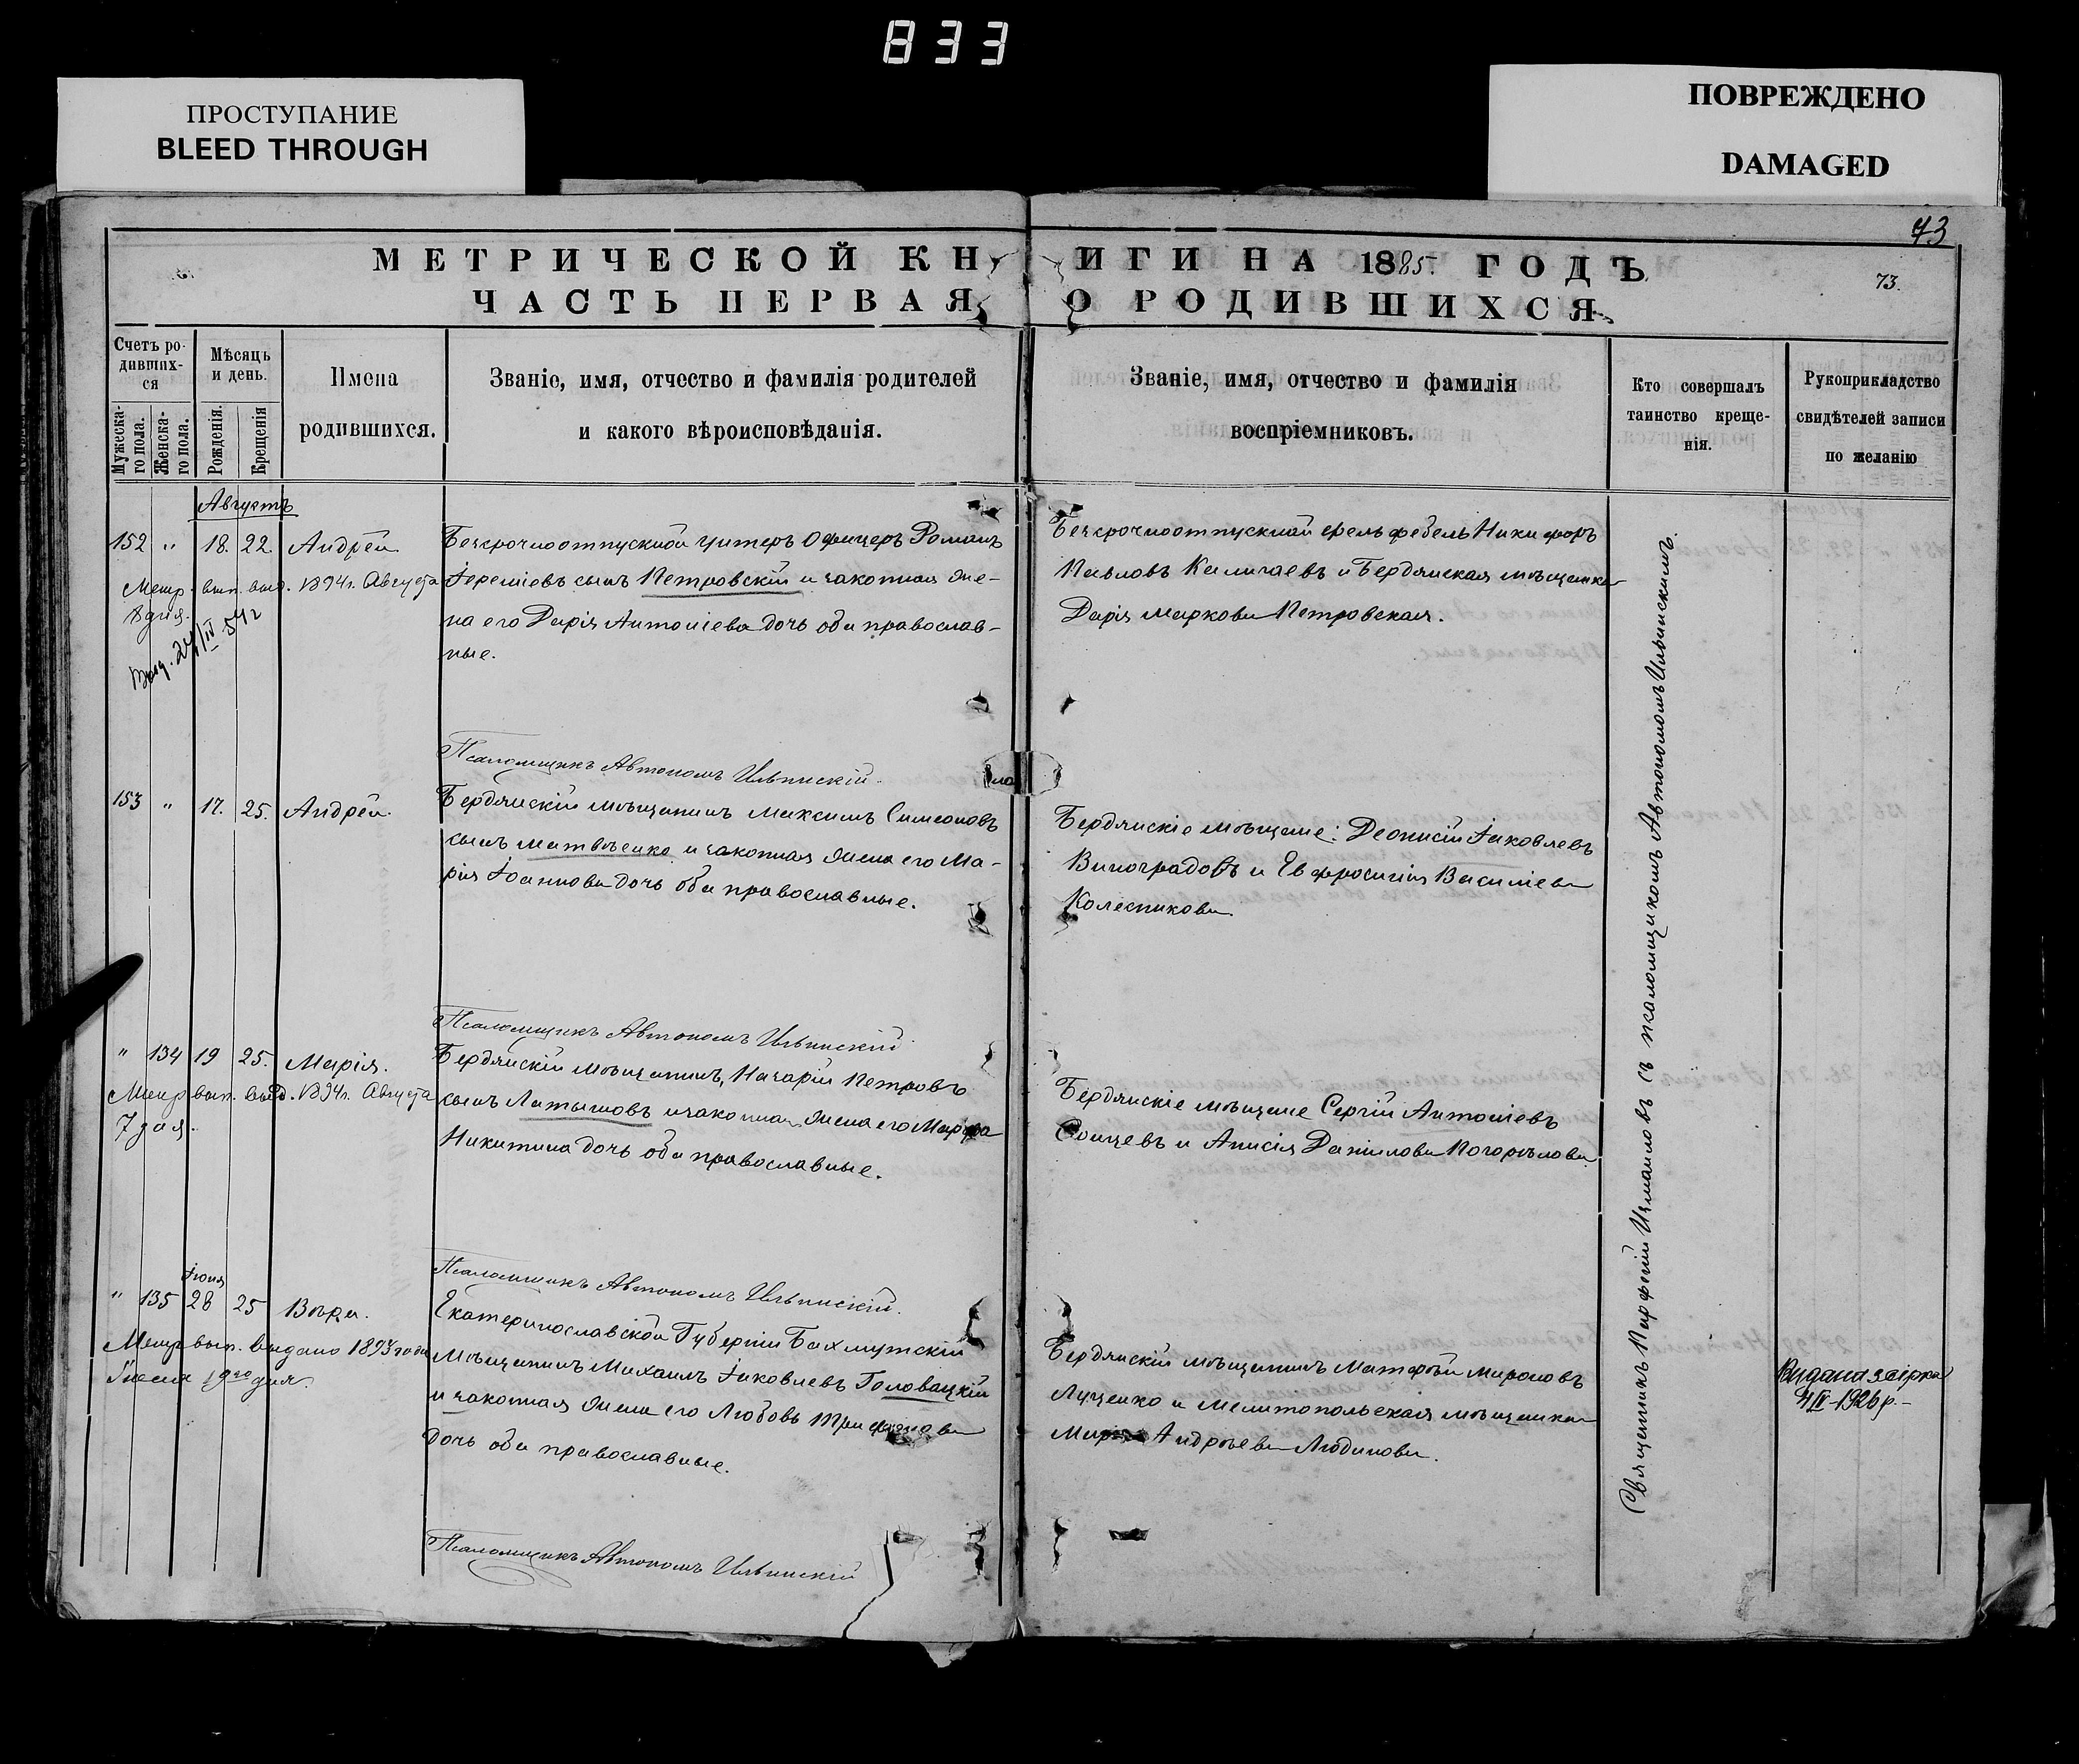 833
ПРОСТУПАНИЕ
BLEED THROUGH
ПОВРЕЖДЕНО
DAMAGED
73
73.
МЕТРИЧЕСКОЙ КНИГИ НА 1885. ГОДЪ
ЧАСТЬ ПЕРВАЯ О РОДИВШИХСЯ
Счетъ родившихся
Мужескаго пола.
Женскаго пола.
Мѣсяцъ и день.
Рожденія.
Крещенія
Имена
родившихся.
Званіе, имя, отчество и фамилія родителей
и какого вѣроисповѣданія.
Званіе, имя, отчество и фамилія
воспріемниковъ.
Кто совершалъ
таинство креще-
нія.
Рукоприкладство
свидѣтелей записи
по желанію
Августъ
152 " 18. 22. Андрей
Метр. вып. выд. 1894г. Августа
8 дня.
Выд. 24/IV 54г
Безсрочноотпускной унтеръ Офицеръ Романъ
Іереміевъ сынъ Петровскій и законная же-
на его Дарія Антоніева дочь оба православ-
ные.
Безсрочноотпускной фельдфебель Никифоръ
Павловъ и Бердянская мѣщанка
Дарія Маркова Петровская.
Псаломщикъ Автономъ Ильинскій.
153 " 17. 25. Андрей
Бердянскій мѣщанинъ Максимъ Симеоновъ
сынъ Матвѣенко и законная жена его Ма-
рія Іоаннова дочь оба православные.
Бердянскіе мѣщане: Деонисій Іаковлевъ
Виноградовъ и Евфросинія Василіева
Колесникова.
Псаломщикъ Автономъ Ильинскій
" 134 19 25. Марія.
Метр. вып. выд. 1894г. Августа
7 дня.
Бердянскій мѣщанинъ, Назарій Петровъ
сынъ Латышовъ и законная жена его Марфа
Никитина дочь оба православные.
Бердянскіе мѣщане Сергій Антоніевъ
и Анисія Даніилова Погорѣлова
Псаломщикъ Автономъ Ильинскій.
Іюня
" 135 28 25 Вѣра.
Метр. вып. выдано 1893 года
19го дня.
Екатеринославской Губерніи Бахмутскій
мѣщанинъ Михаилъ Іаковлевъ Головацкій
и законная жена его Любовь Трифонова
дочь оба православные.
Бердянскій мѣщанинъ Матфей Мироновъ
Луценко и Мелитопольская мѣщанка
Марія Андреева Людинова.
Видана 1926 р.-
Псаломщикъ Автономъ Ильинскій
Священникъ Парфеній Измаиловъ съ псаломщикомъ Автономомъ Ильинскимъ.